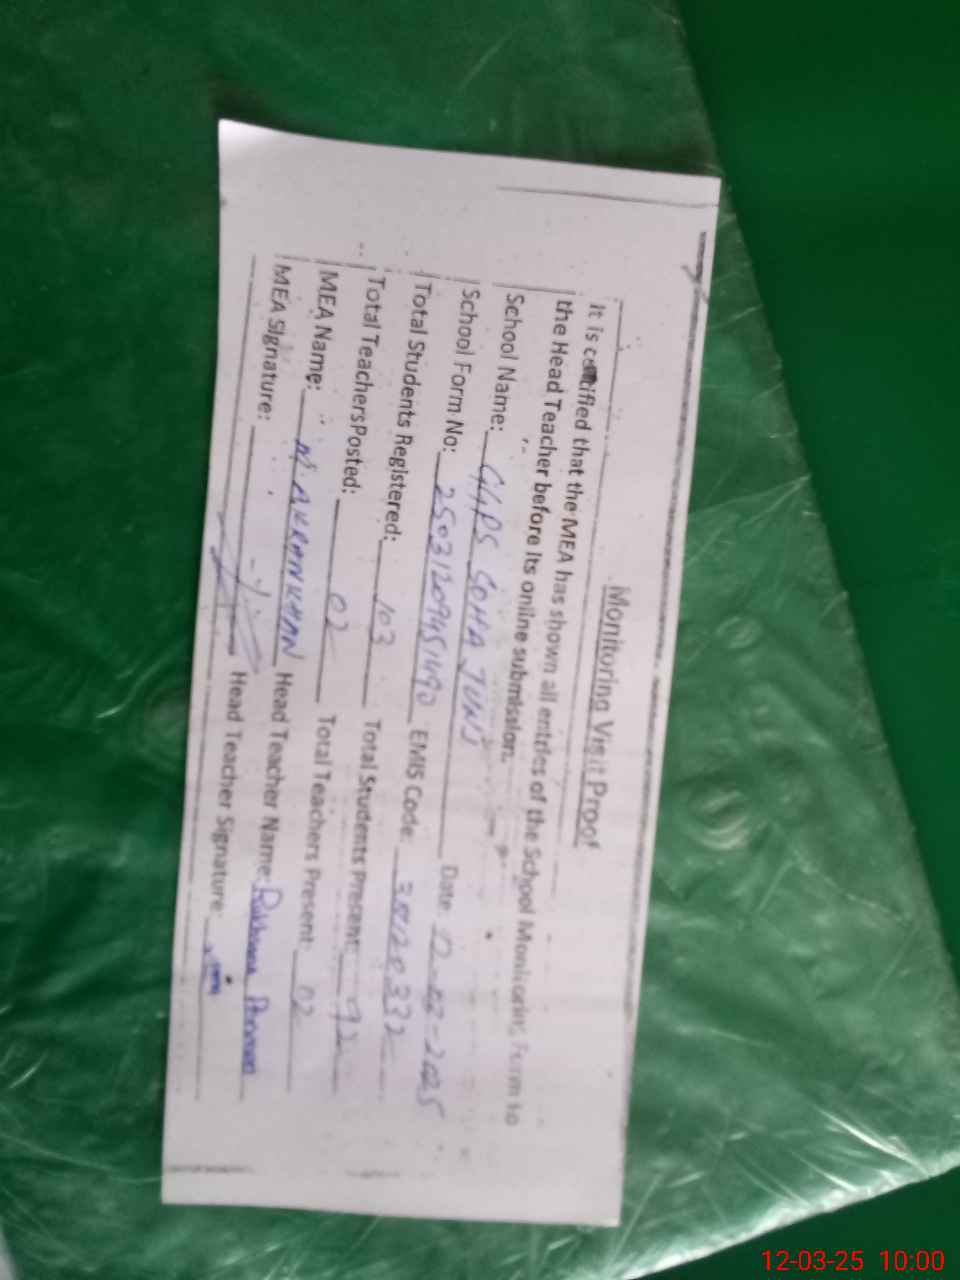 Monitoring Visit Proof
It is certified that the MEA has shown all entries of the School Monitoring Form to
the Head Teacher before its online submission.
School Name: GGPS SOHA JUNJ
School Form No: 25031209451490 Date: 12-03-2025
Total Students Registered: 103 EMIS Code:
Total TeachersPosted: 02 Total Students Present: 92
MEA Name: M. AKRAM KHAN Total Teachers Present: 02
MEA Signature: Head Teacher Name: Rukhsana Parveen
Head Teacher Signature:
12-03-25 10:00